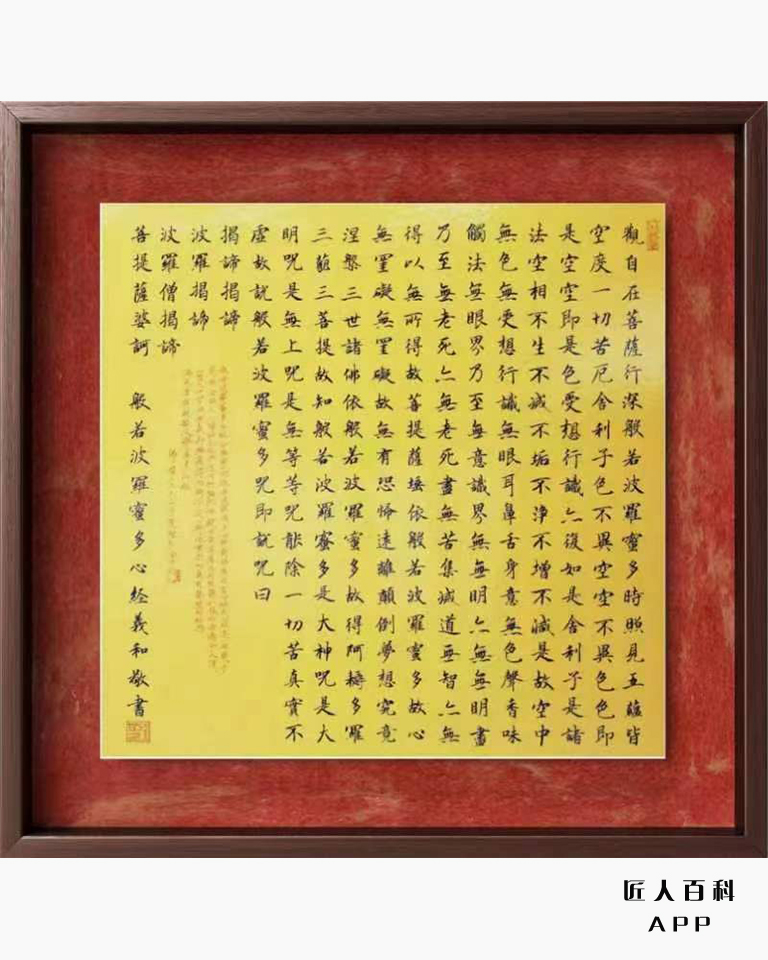 觀自在菩薩行深般若波羅蜜多時照見五蘊皆
空度一切苦厄舍利子色不異空空不異色色即
是空空即是色受想行識亦復如是舍利子是諸
法空相不生不滅不垢不淨不增不減是故空中
無色無受想行識無眼耳鼻舌身意無色聲香味
觸法無眼界乃至無意識界無無明亦無無明盡
乃至無老死亦無老死盡無苦集滅道無智亦無
得以無所得故菩提薩埵依般若波羅蜜多故心
無罣礙無罣礙故無有恐怖遠離顛倒夢想究竟
涅槃三世諸佛依般若波羅蜜多故得阿耨多羅
三藐三菩提故知般若波羅蜜多是大神咒是大
明咒是無上咒是無等等咒能除一切苦真實不
虛故說般若波羅蜜多咒即說咒曰
揭諦揭諦
波羅揭諦
波羅僧揭諦
菩提薩婆訶 般若波羅蜜多心经義和敬書
匠人百科
APP